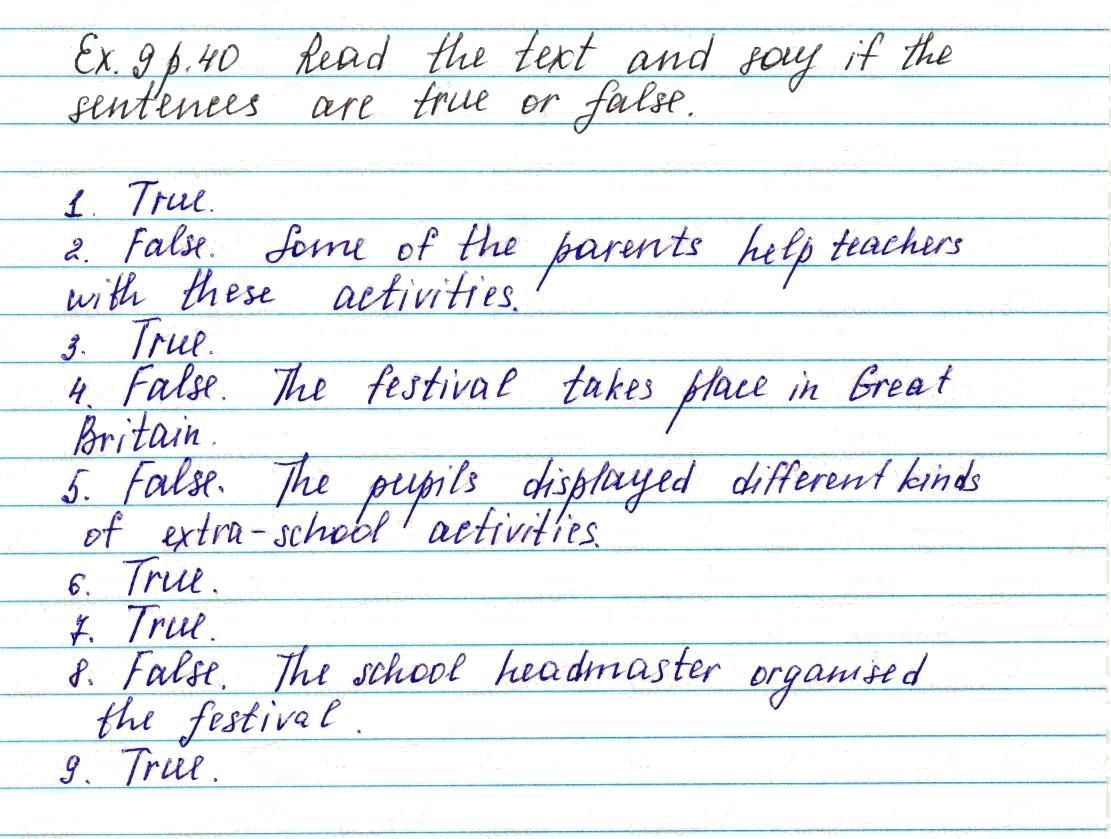 Ex. 9 p.40 Read the text and say if the
sentences are true or false.
1. True.
2. False. Some of the parents help teachers
with these activities.
3. True.
4. False. The festival takes place in Great
Britain.
5. False. The pupils displayed different kinds
of extra-school activities.
6. True.
7. True.
8. False. The school headmaster organised
the festival.
9. True.